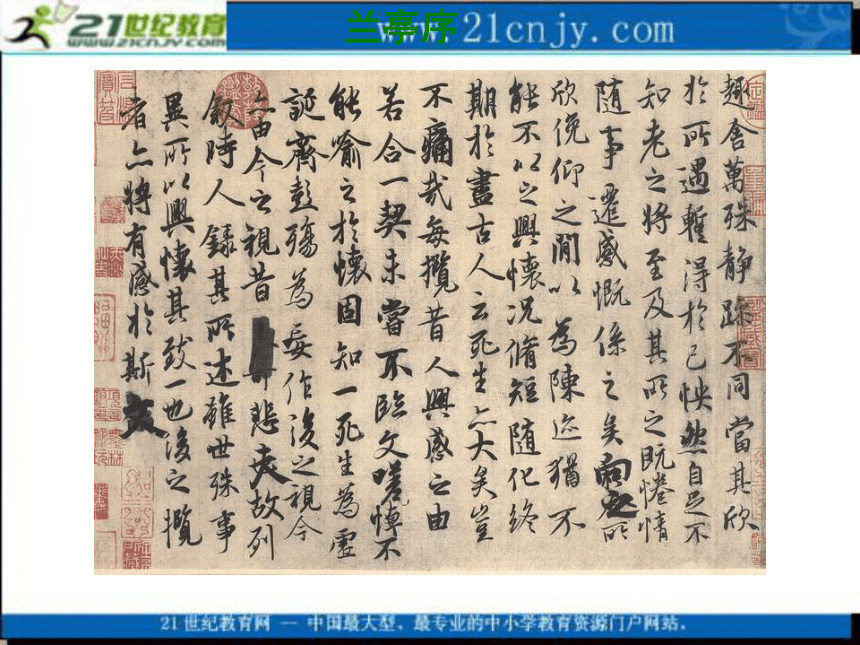 21世纪教育
www.21cnjy.com
兰亭序
www.21cnjy.com
趣舍萬殊静躁不同當其欣
於所遇蹔得於己怏然自足不
知老之將至及其所之既惓情
随事遷感慨係之矣向之所
欣俛仰之閒以為陳迹猶不
能不以之興懷况脩短随化終
期於盡古人云死生亦大矣豈
不痛哉每攬昔人興感之由
若合一契未嘗不臨文嗟悼不
能喻之於懷固知一死生為虚
誕齊彭殤為妄作後之視今
亦由今之視昔 悲夫故列
叙時人錄其所述雖世殊事
異所以興懷其致一也後之攬
者亦將有感於斯文
21世纪教育网 -- 中国最大型、最专业的中小学教育资源门户网站.